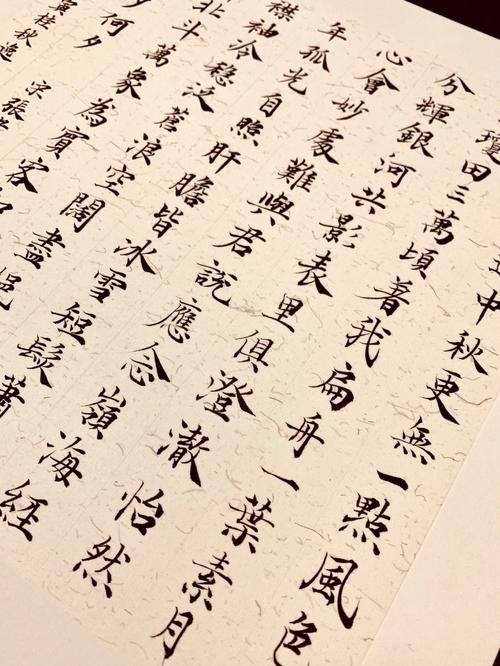 中秋更無一點風色
瓊田三萬頃著我扁舟一葉素月
分輝銀河共影表里俱澄澈怡然
心會妙處難與君說應念嶺海經
年孤光自照肝膽皆冰雪短髮蕭
襟袖冷穩泛蒼浪空闊盡挹
北斗萬象為賓客
夕何夕
宋張孝
桂秋逸